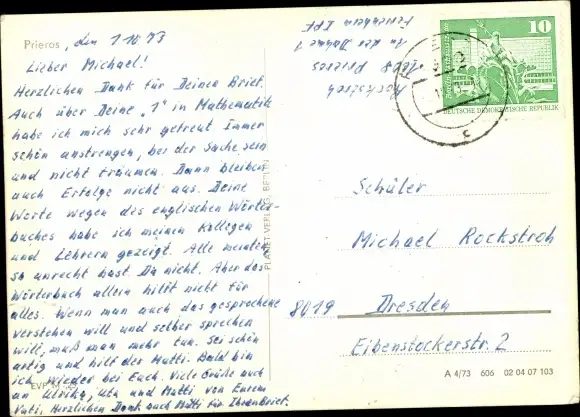 Prieros, den 1 10 73
Lieber Michael!
Herzlichen Dank für Deinen Brief.
Auch über Deine „1" in Mathematik
habe ich mich sehr gefreut Immer
schön anstrengen, bei der Sache sein
und nicht träumen. Dann bleiben
auch Erfolge nicht aus. Deine
Worte wegen des englischen Wörter-
buches habe ich meinen Kollegen
und Lehrern gezeigt. Alle meinten,
so unrecht hast Du nicht. Aber das
Wörterbuch allein hilft nicht für
alles. Wenn man auch das gesprochene
verstehen will und selber sprechen
will, muß man mehr tun. Sei schön
artig und hilf der Mutti. Bald bin
ich wieder bei Euch. Viele Grüße auch
an Ulrike, Uta und Mutti von Eurem
Vati. Herzlichen Dank auch Mutti für Ihren Brief.
EVP
PLANET-VERLAG BERLIN
Rockstroh
Prieros
An der Dahme 1
Ferienheim
10
DEUTSCHE DEMOKRATISCHE REPUBLIK
Schüler
Michael Rockstroh
8019 Dresden
Eibenstockerstr. 2
A 4/73 606 02 04 07 103